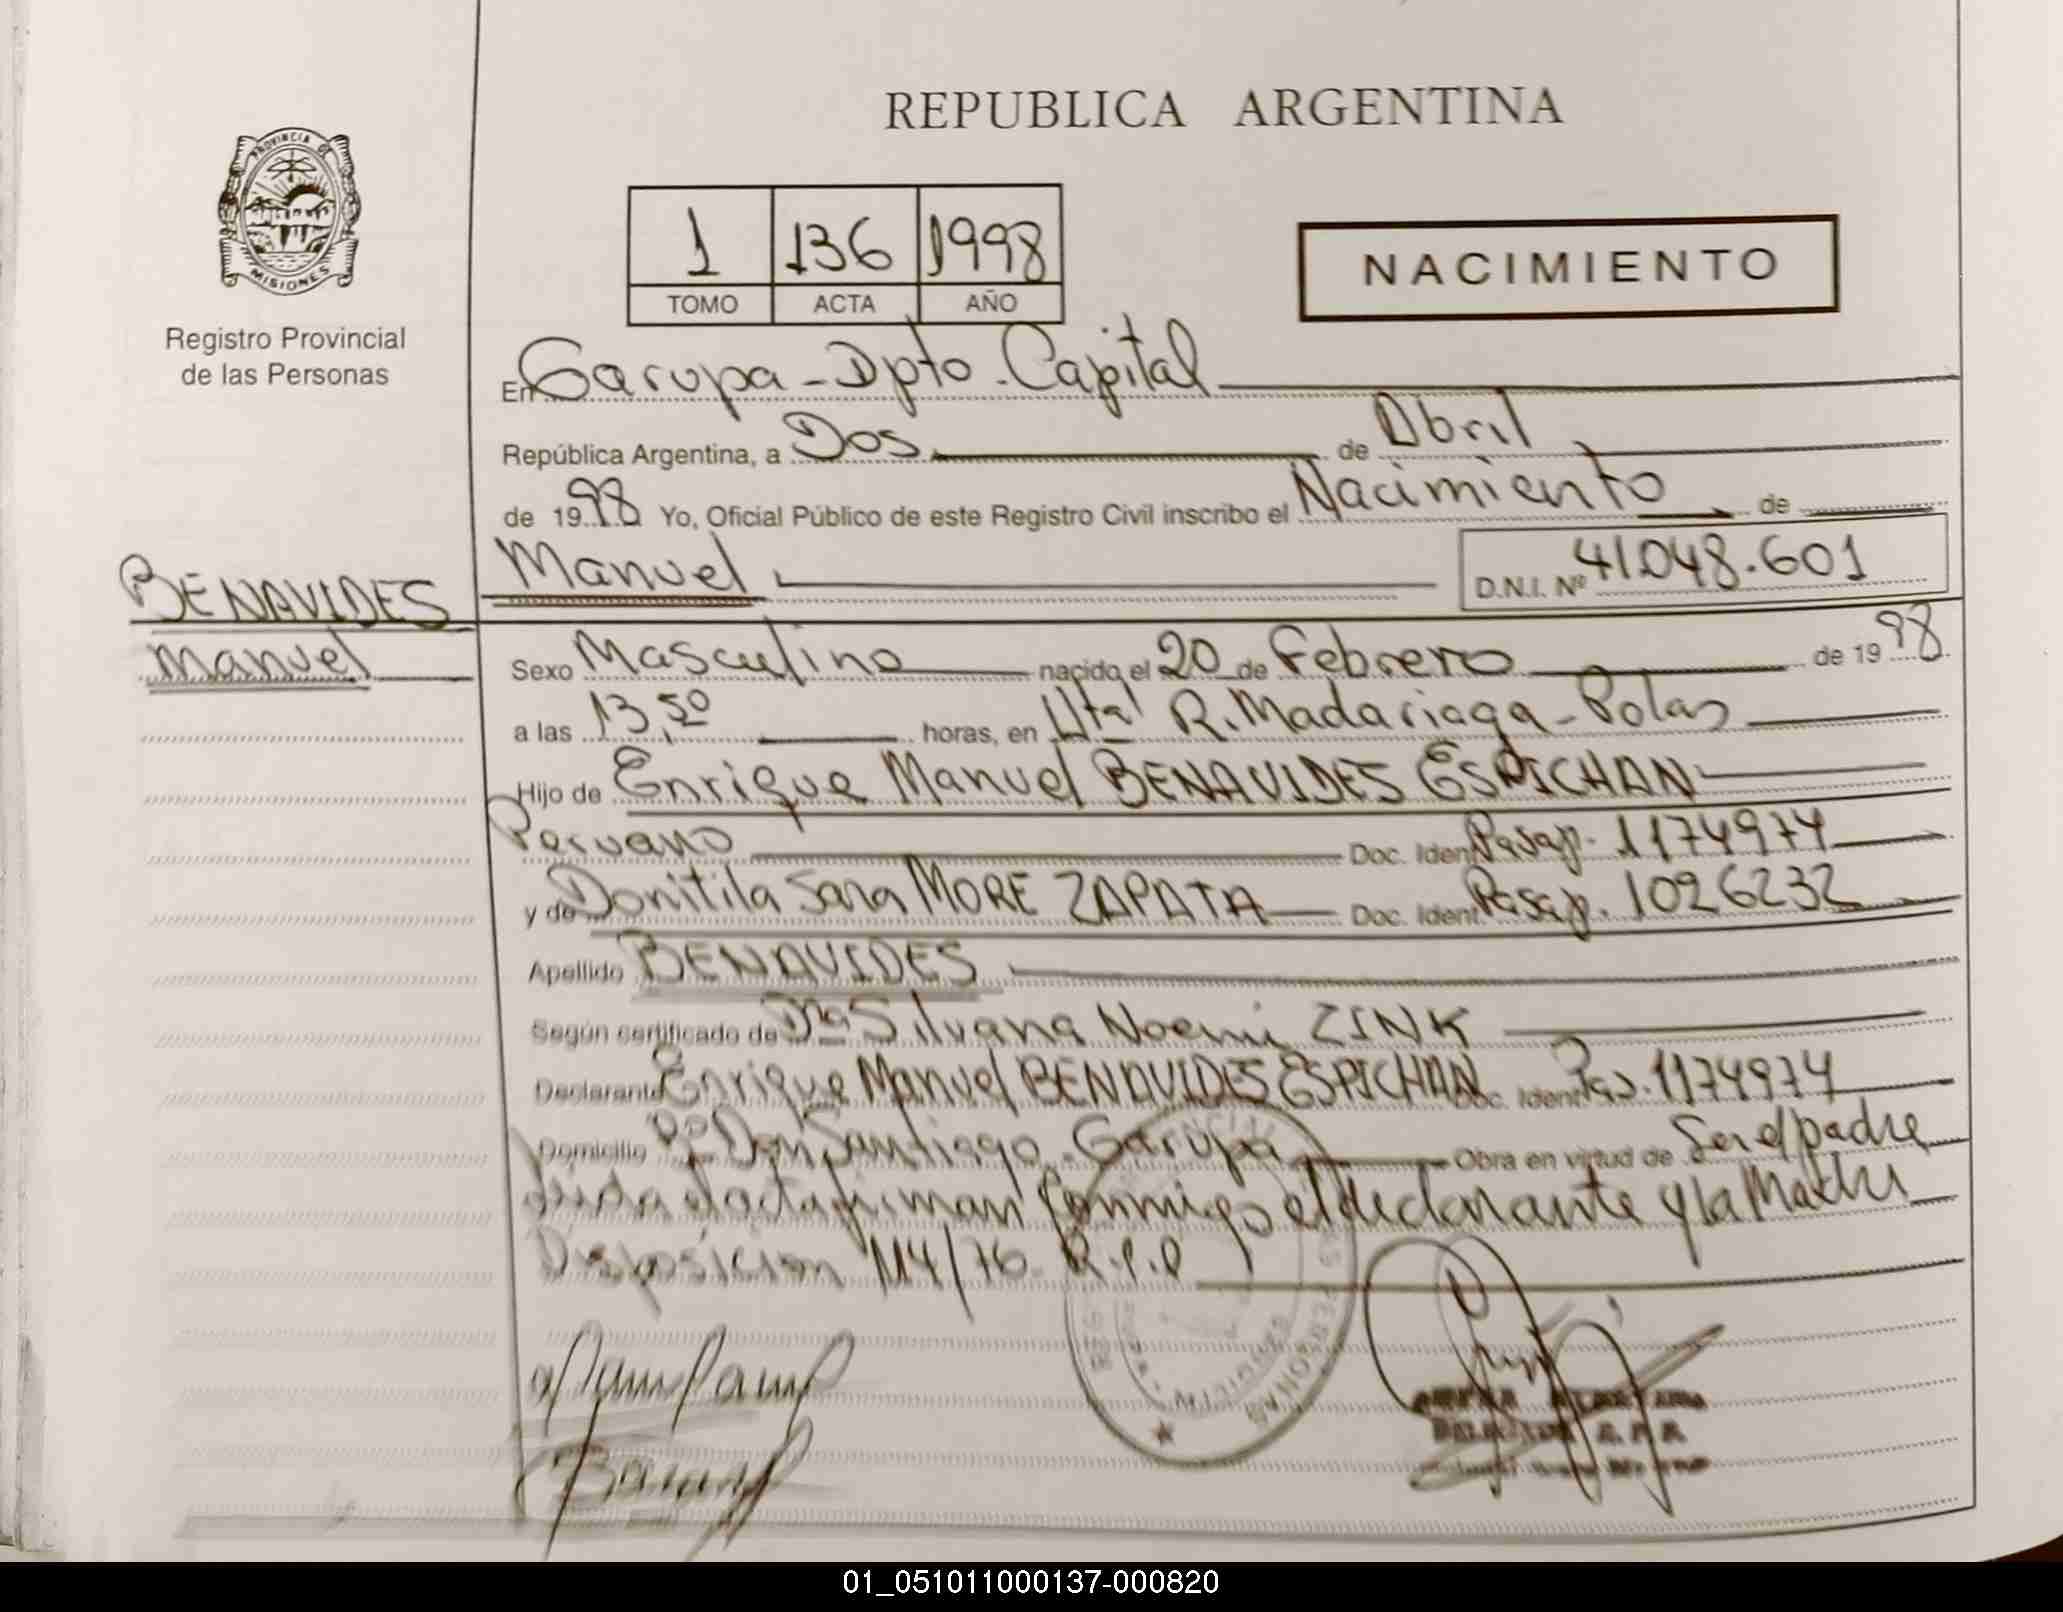 REPUBLICA ARGENTINA
PROVINCIA DE
MISIONES
Registro Provincial
de las Personas
1 136 1998
TOMO ACTA AÑO
NACIMIENTO
En Garupa - Dpto. Capital
República Argentina, a Dos de Abril
de 1998 Yo, Oficial Público de este Registro Civil inscribo el Nacimiento de
Manuel D.N.I. Nº 41.048.601
BENAVIDES
Manuel
Sexo Masculino nacido el 20 de Febrero de 1998
a las 13,50 horas, en Htal R. Madariaga - Pdas
Hijo de Enrique Manuel BENAVIDES ESPICHAN
Peruano Doc. Ident. Pasap. 1174974
y de Donitila Sara MORE ZAPATA Doc. Ident. Pasap. 1026232
Apellido BENAVIDES
Según certificado de Dra Silvana Noemi ZINK
Declarante Enrique Manuel BENAVIDES ESPICHAN Doc. Ident. Pas. 1174974
Domicilio Bº Don Santiago. Garupa Obra en virtud de Ser el padre
leida el acta firman conmigo el declarante y la Madre
Disposicion 114/76 R.P.P
01_051011000137-000820